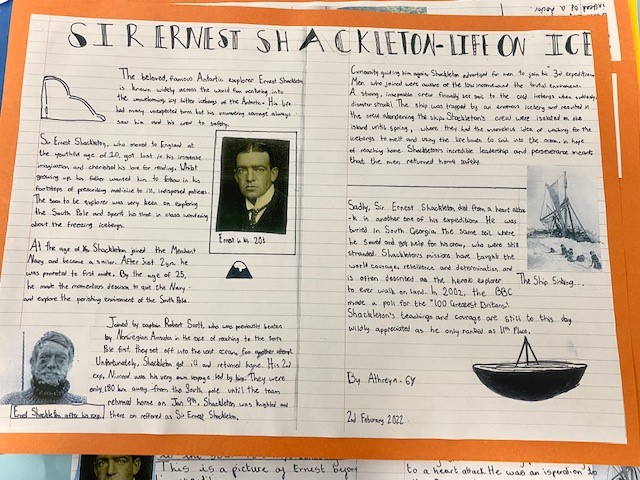 SIR ERNEST SHACKLETON-LIFE ON ICE
The beloved, famous Antartic explorer Ernest Shackleton
is known widely across the world for venturing into
the unwelcoming icy bitter icebergs of the Antartic. His life
had many unexpected turns but his unwavering courage always
saw him and his crew to safety.
Sir Ernest Shackleton, who moved to England at
the youthful age of 10, got lost in his immense
imagination and cherished his love for reading. Whilst
growing up, his father wanted him to follow in his
footsteps of prescribing medicine to ill, indisposed patients.
The soon to be explorer was very keen on exploring
the South Pole and spent his time in class wondering
about the freezing icebergs.
Ernest in his 20s
At the age of 16 Shackleton joined the Merchant
Navy and became a sailor. After just 2 yrs, he
was promoted to first mate. By the age of 25,
he made the momentous decision to quit the Navy
and explore the perishing enviroment of the South Pole.
Joined by captain Robert Scott, who was previously beaten
by Norwegian Amudsen in the race of reaching to the South
Pole first, they set off into the vast ocean, for another attempt.
Unfortunately, Shackleton got ill and returned home. His 2nd
exp, Nimrod was his very own voyage led by him. They were
only 180 km away from the South pole until the team
returned home on Jan 9th. Shackleton was knighted and
there on reffered as Sir Ernest Shackleton.
Ernest Shackleton after his exp.
Curiousity guiding him again, Shackleton advertised for men to join his 3rd expedition.
Men who joined were aware of the low income and the brutal enviroment.
A strong, inseperable crew finally set sail to the cold icebergs when suddenly,
disaster struck! The ship was trapped by an enormous iceberg and resulted in
the crew abandoning the ship. Shackleton's crew were isolated on the
island until spring, where they had the marvelous idea of waiting for the
icebergs to melt and using the life boats to sail into the ocean in hope
of reaching home. Shackleton's incredible leadership and perseverance meant
that the men returned home safely.
Sadly, Sir Ernest Shackleton died from a heart attac
-k in another one of his expeditions. He was
buried in South Georgia, the same soil, where
he saved and got help for his crew, who were still
stranded. Shackleton's missions have taught the
world courage, resilience and determination, and
is often described as the heroic explorer
to ever walk on land. In 2002, the BBC
made a poll for the "100 Greatest Britons".
Shackleton's teachings and courage are still to this day
wildly appreciated as he only ranked as 11th Place.
The Ship Sinking...
By Athreyn - 6Y
2nd February 2022
This is a picture of Ernest
to a heart attack. He was an isperation to